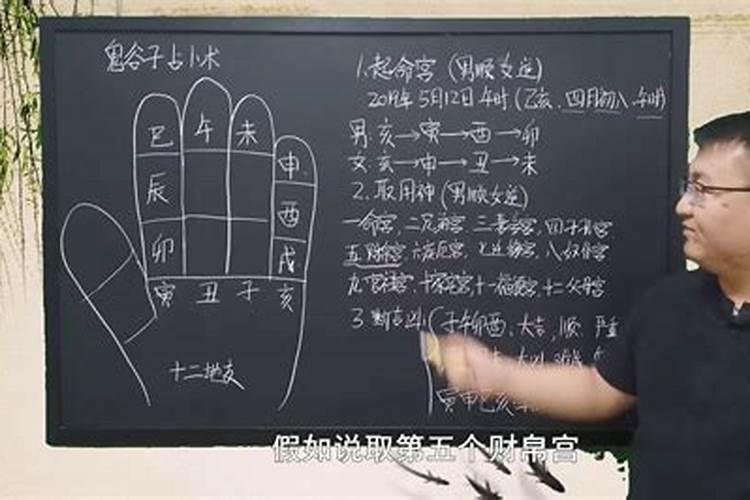 鬼谷子占卜术
巳 午 未
申
辰
酉
卯
戌
寅 丑 子 亥
十二地支
1.起命宫(男顺女逆)
2019年5月12日午时(乙亥、四月初八、午时)
男:亥→寅→酉→卯
女:亥→申→丑→未
2.取用神(男顺女逆)
一命宫,二兄弟宫,三妻妾宫,四子女宫
五财帛宫,六疾厄宫,七迁移宫,八奴仆宫
九官禄宫,十田宅宫,十一福德宫,十二父母宫
3.断吉凶(子午卯酉、大吉,顺
寅申巳亥
假如说取第五个财帛宫